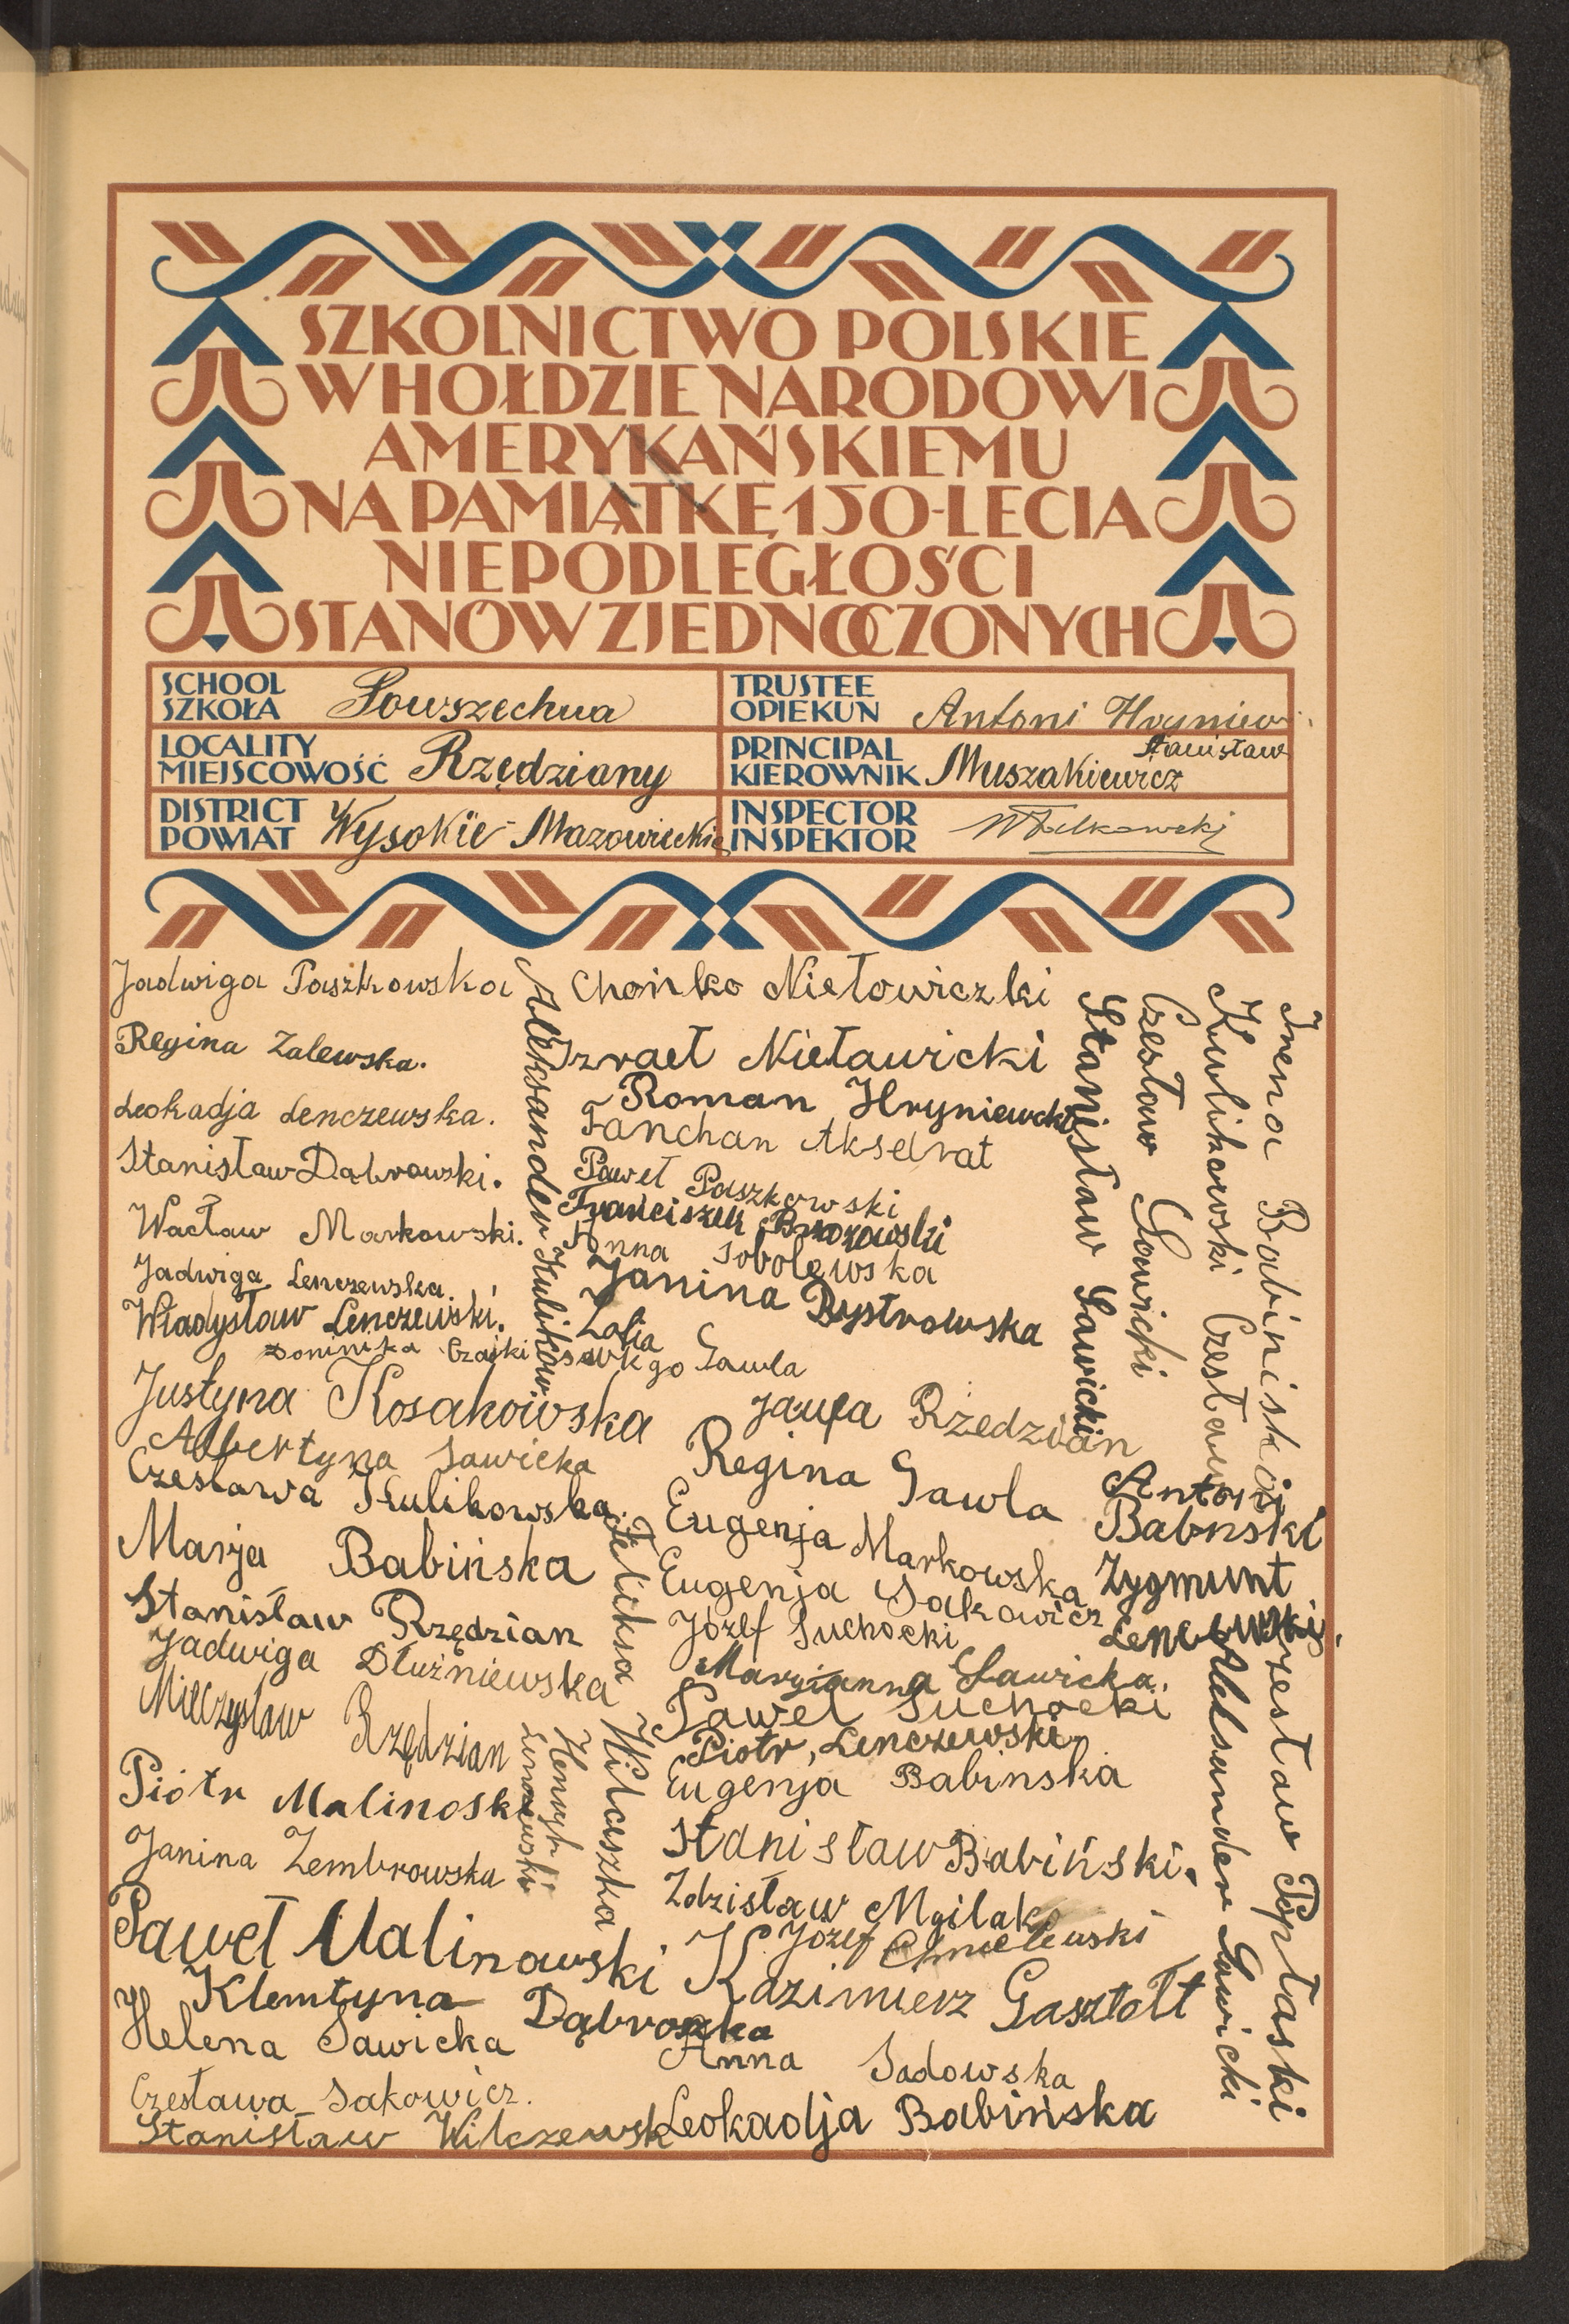 SZKOLNICTWO POLSKIE
W HOŁDZIE NARODOWI
AMERYKAŃSKIEMU
NA PAMIĄTKĘ 150-LECIA
NIEPODLEGŁOŚCI
STANÓW ZJEDNOCZONYCH
SCHOOL
SZKOŁA
Powszechna
TRUSTEE
OPIEKUN
Antoni Hryniew
LOCALITY
MIEJSCOWOŚĆ
Rzędziany
PRINCIPAL
KIEROWNIK
Stanisław
Muszakiewicz
DISTRICT
POWIAT
Wysokie-Mazowieckie
INSPECTOR
INSPEKTOR
Jadwiga Paszkowska
Regina Zalewska.
Leokadja Lenczewska.
Stanisław Dąbrowski.
Wacław Markowski.
Jadwiga Lenczewska.
Władysław Lenczewski.
Dominika
Justyna Kosakowska
Albertyna Sawicka
Czesława Kulikowska.
Marja Babińska
Stanisław Rzędzian
Jadwiga Dłużniewska
Mieczysław Rzędzian
Piótr Malinoski
Janina Zembrowska
Paweł Malinowski
Klemtyna Dąbroska
Helena Sawicka
Czesława Sakowicz.
Stanisław Wilczewsk
Aleksander Kulikow
Feliksa Wilaszka
Henryk
Chońko Niełowiczki
Izrael Nieławicki
Roman Hryniewcki
Fanchan Akselrat
Paweł Paszkowski
Franciszek
Anna Sobolewska
Janina Bystrowska
Zofia
Gawla
Regina Gawla
Eugenja Markowska
Eugenja Sakowicz
Józef Suchocki
Maryianna Sawicka.
Paweł Suchocki
Piotr, Lenczewski
Eugenja Babinska
Stanisław Babiński.
Zdzisław
Józef Chmielewski
Kazimierz Gasztołt
Anna Sadowska
Leokadja Babińska
Rzędzian
Stanisław Sawicki
Czesław Sawicki
Kulikowski Czesław
Irena Babiniska
Antoni
Babnski
Zygmunt
Aleksander Sawicki
Czesław Popłaski